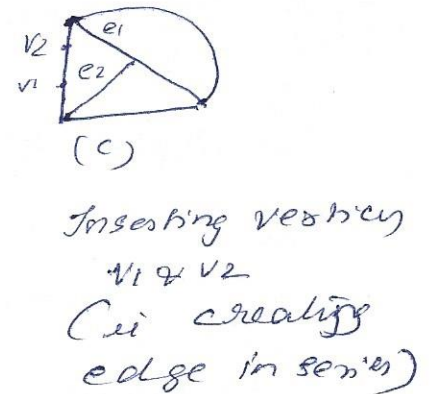 e1
v2
e2
v1
(C)
Inserting vertices
v1 & v2
(ie creating
edge in series)